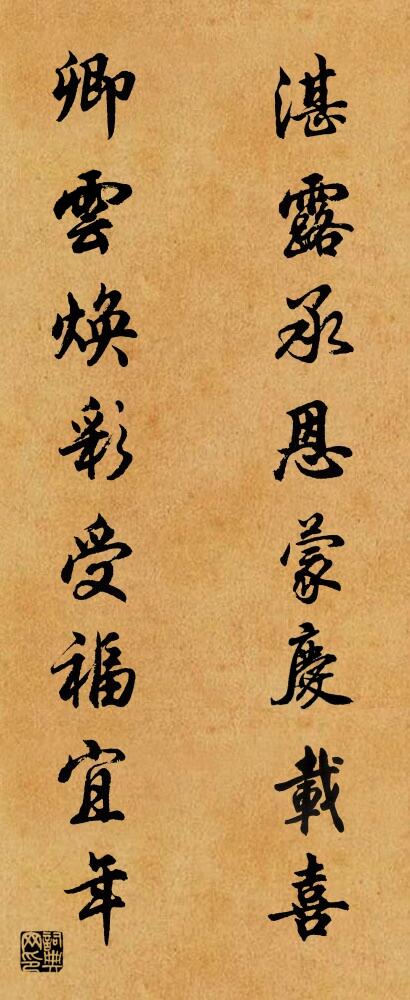 湛露承恩蒙慶載喜
卿雲煥彩受福宜年
詞典网印